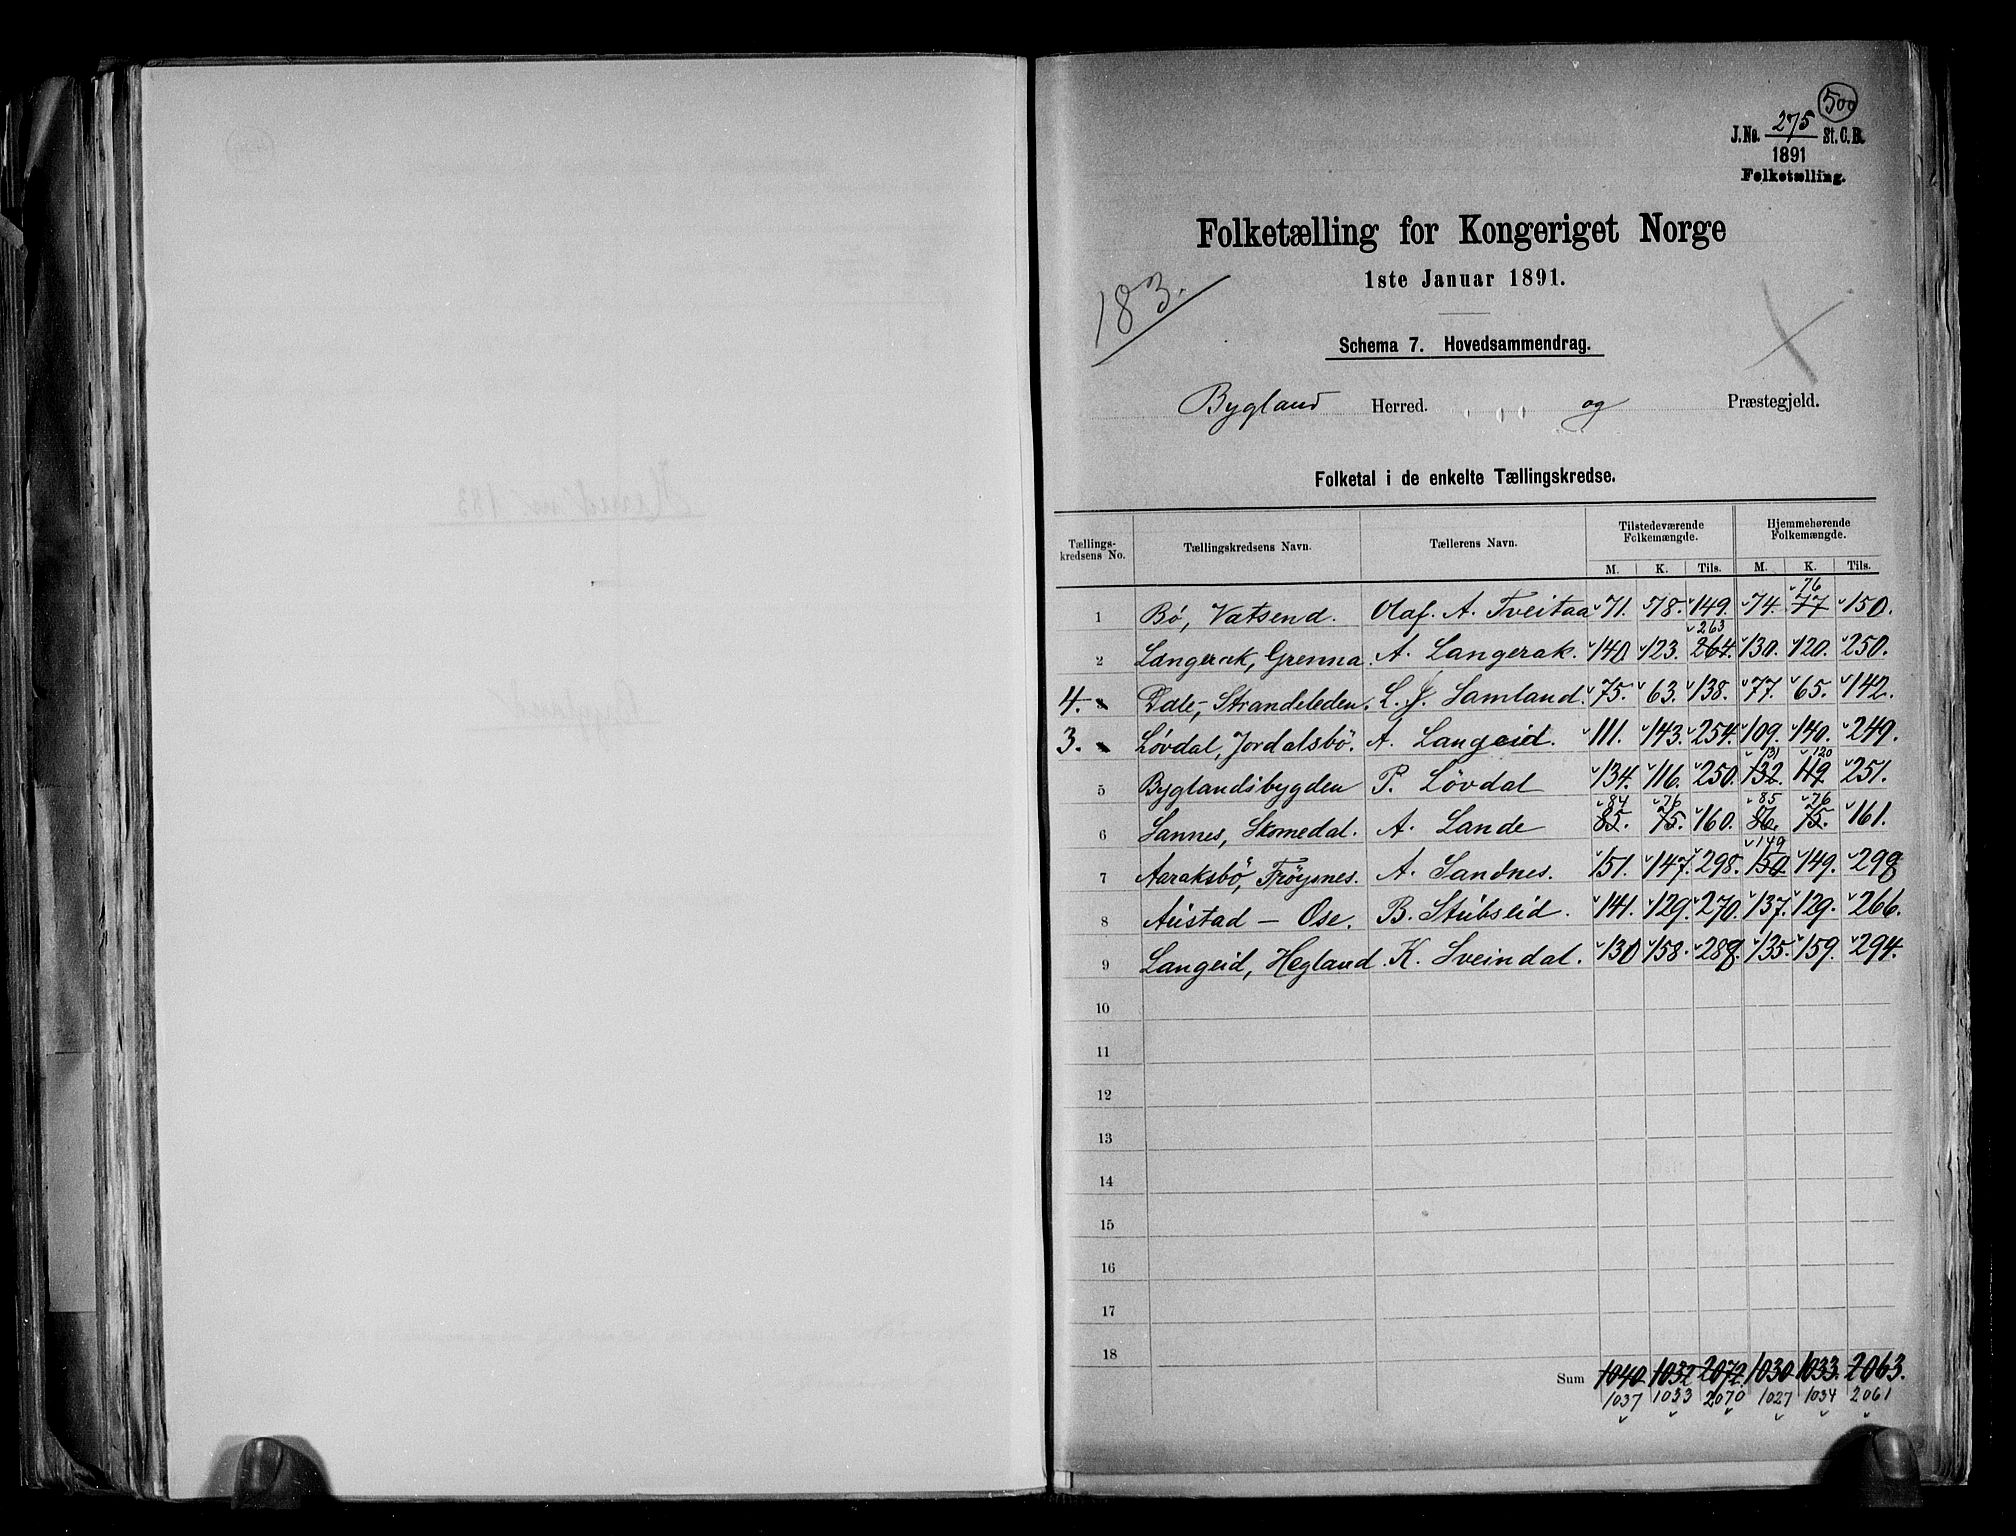 500
J.No. 275 St.C.B.
1891
Folketælling.
Folketælling for Kongeriget Norge
1ste Januar 1891.
183.
Schema 7. Hovedsammendrag.
Bygland Herred. og Præstegjeld.
Folketal i de enkelte Tællingskredse.
Tællings-kredsens No. Tællingskredsens Navn. Tællerens Navn. Tilstedeværende Folkemængde. Hjemmehørende Folkemængde.
M. K. Tils. M. K. Tils.
76
1 Bø, Vatsend. Olaf. A. Tveitaa 71. 78. 149. 74. 77 150.
263
2 Langerak, Grenna. A. Langerak. 140 123. 264. 130. 120. 250.
4. Dale-, Strandeleden. L. J. Samland. 75. 63. 138. 77. 65. 142.
3. Løvdal, Jordalsbö. A. Langeid. 111. 143. 254. 109. 140. 249.
131 120
5 Byglandsbygden P. Lövdal 134. 116. 250. 132. 119 251.
84 76 85 76
6 Sannes, Skomedal. A. Lande 85. 75. 160. 86. 75. 161.
149
7 Aaraksbö, Frøysnes. A. Sandnes. 151. 147. 298. 150 149. 298
8 Austad - Ose. B. Stubseid. 141. 129. 270. 137. 129. 266.
9 Langeid, Hegland. K. Sveindal. 130 158. 288. 135. 159. 294.
10
11
12
13
14
15
16
17
18
Sum 1040 1032 2072. 1030 1033. 2063.
1037 1033 2070 1027 1034 2061